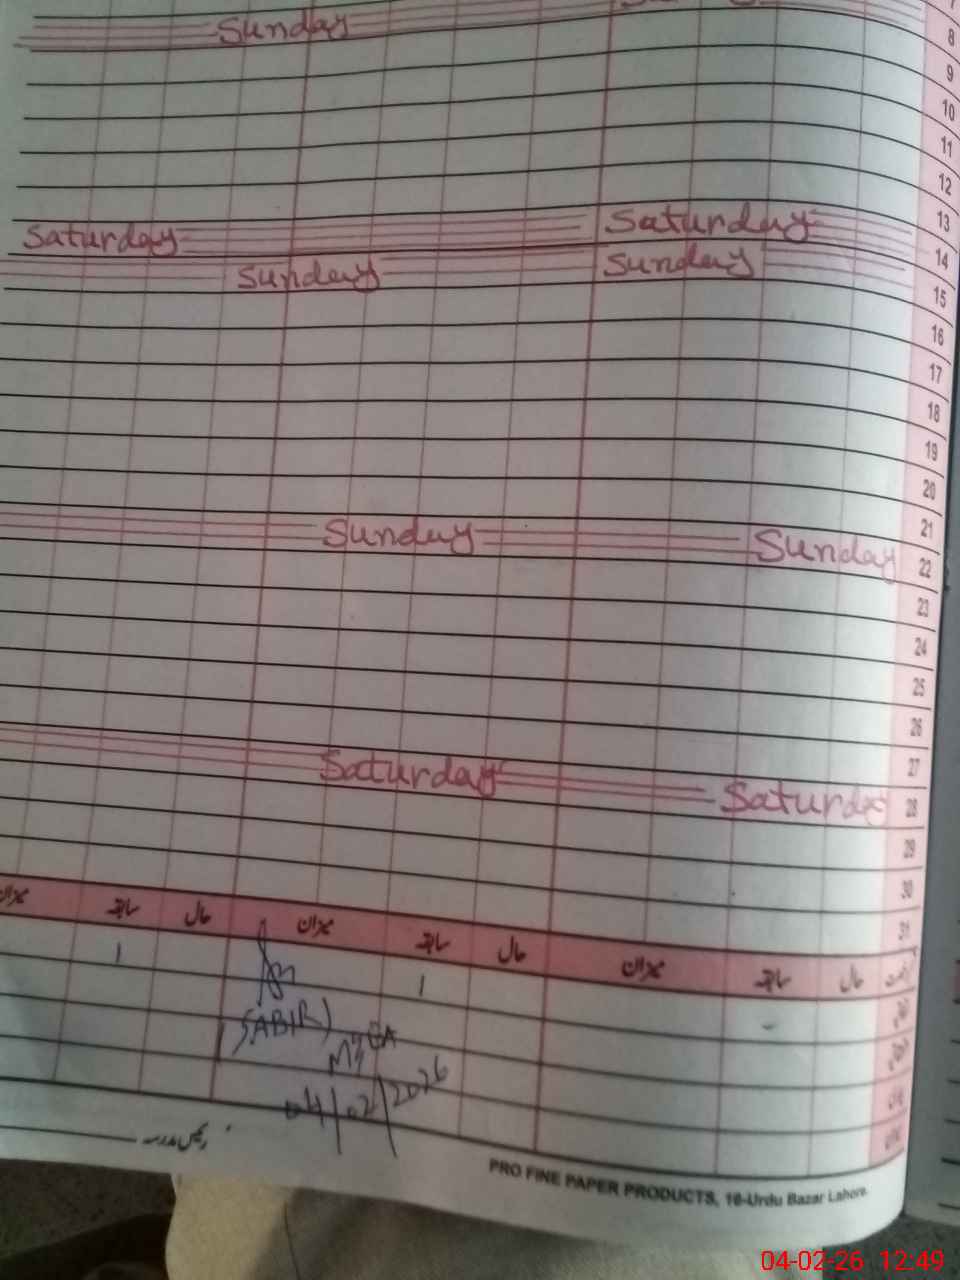 Sunday
7
8
9
10
11
12
13
Saturday Saturday
14
Sunday Sunday
15
16
17
18
19
20
21
Sunday Sunday
22
23
24
25
26
27
Saturday Saturday
28
29
30
31
میزان سابقہ حال میزان سابقہ حال میزان سابقہ حال
1 1 -
(SABIR)
04/02/2026
رئیس مدرسہ
PRO FINE PAPER PRODUCTS, 16-Urdu Bazar Lahore.
04-02-26 12:49